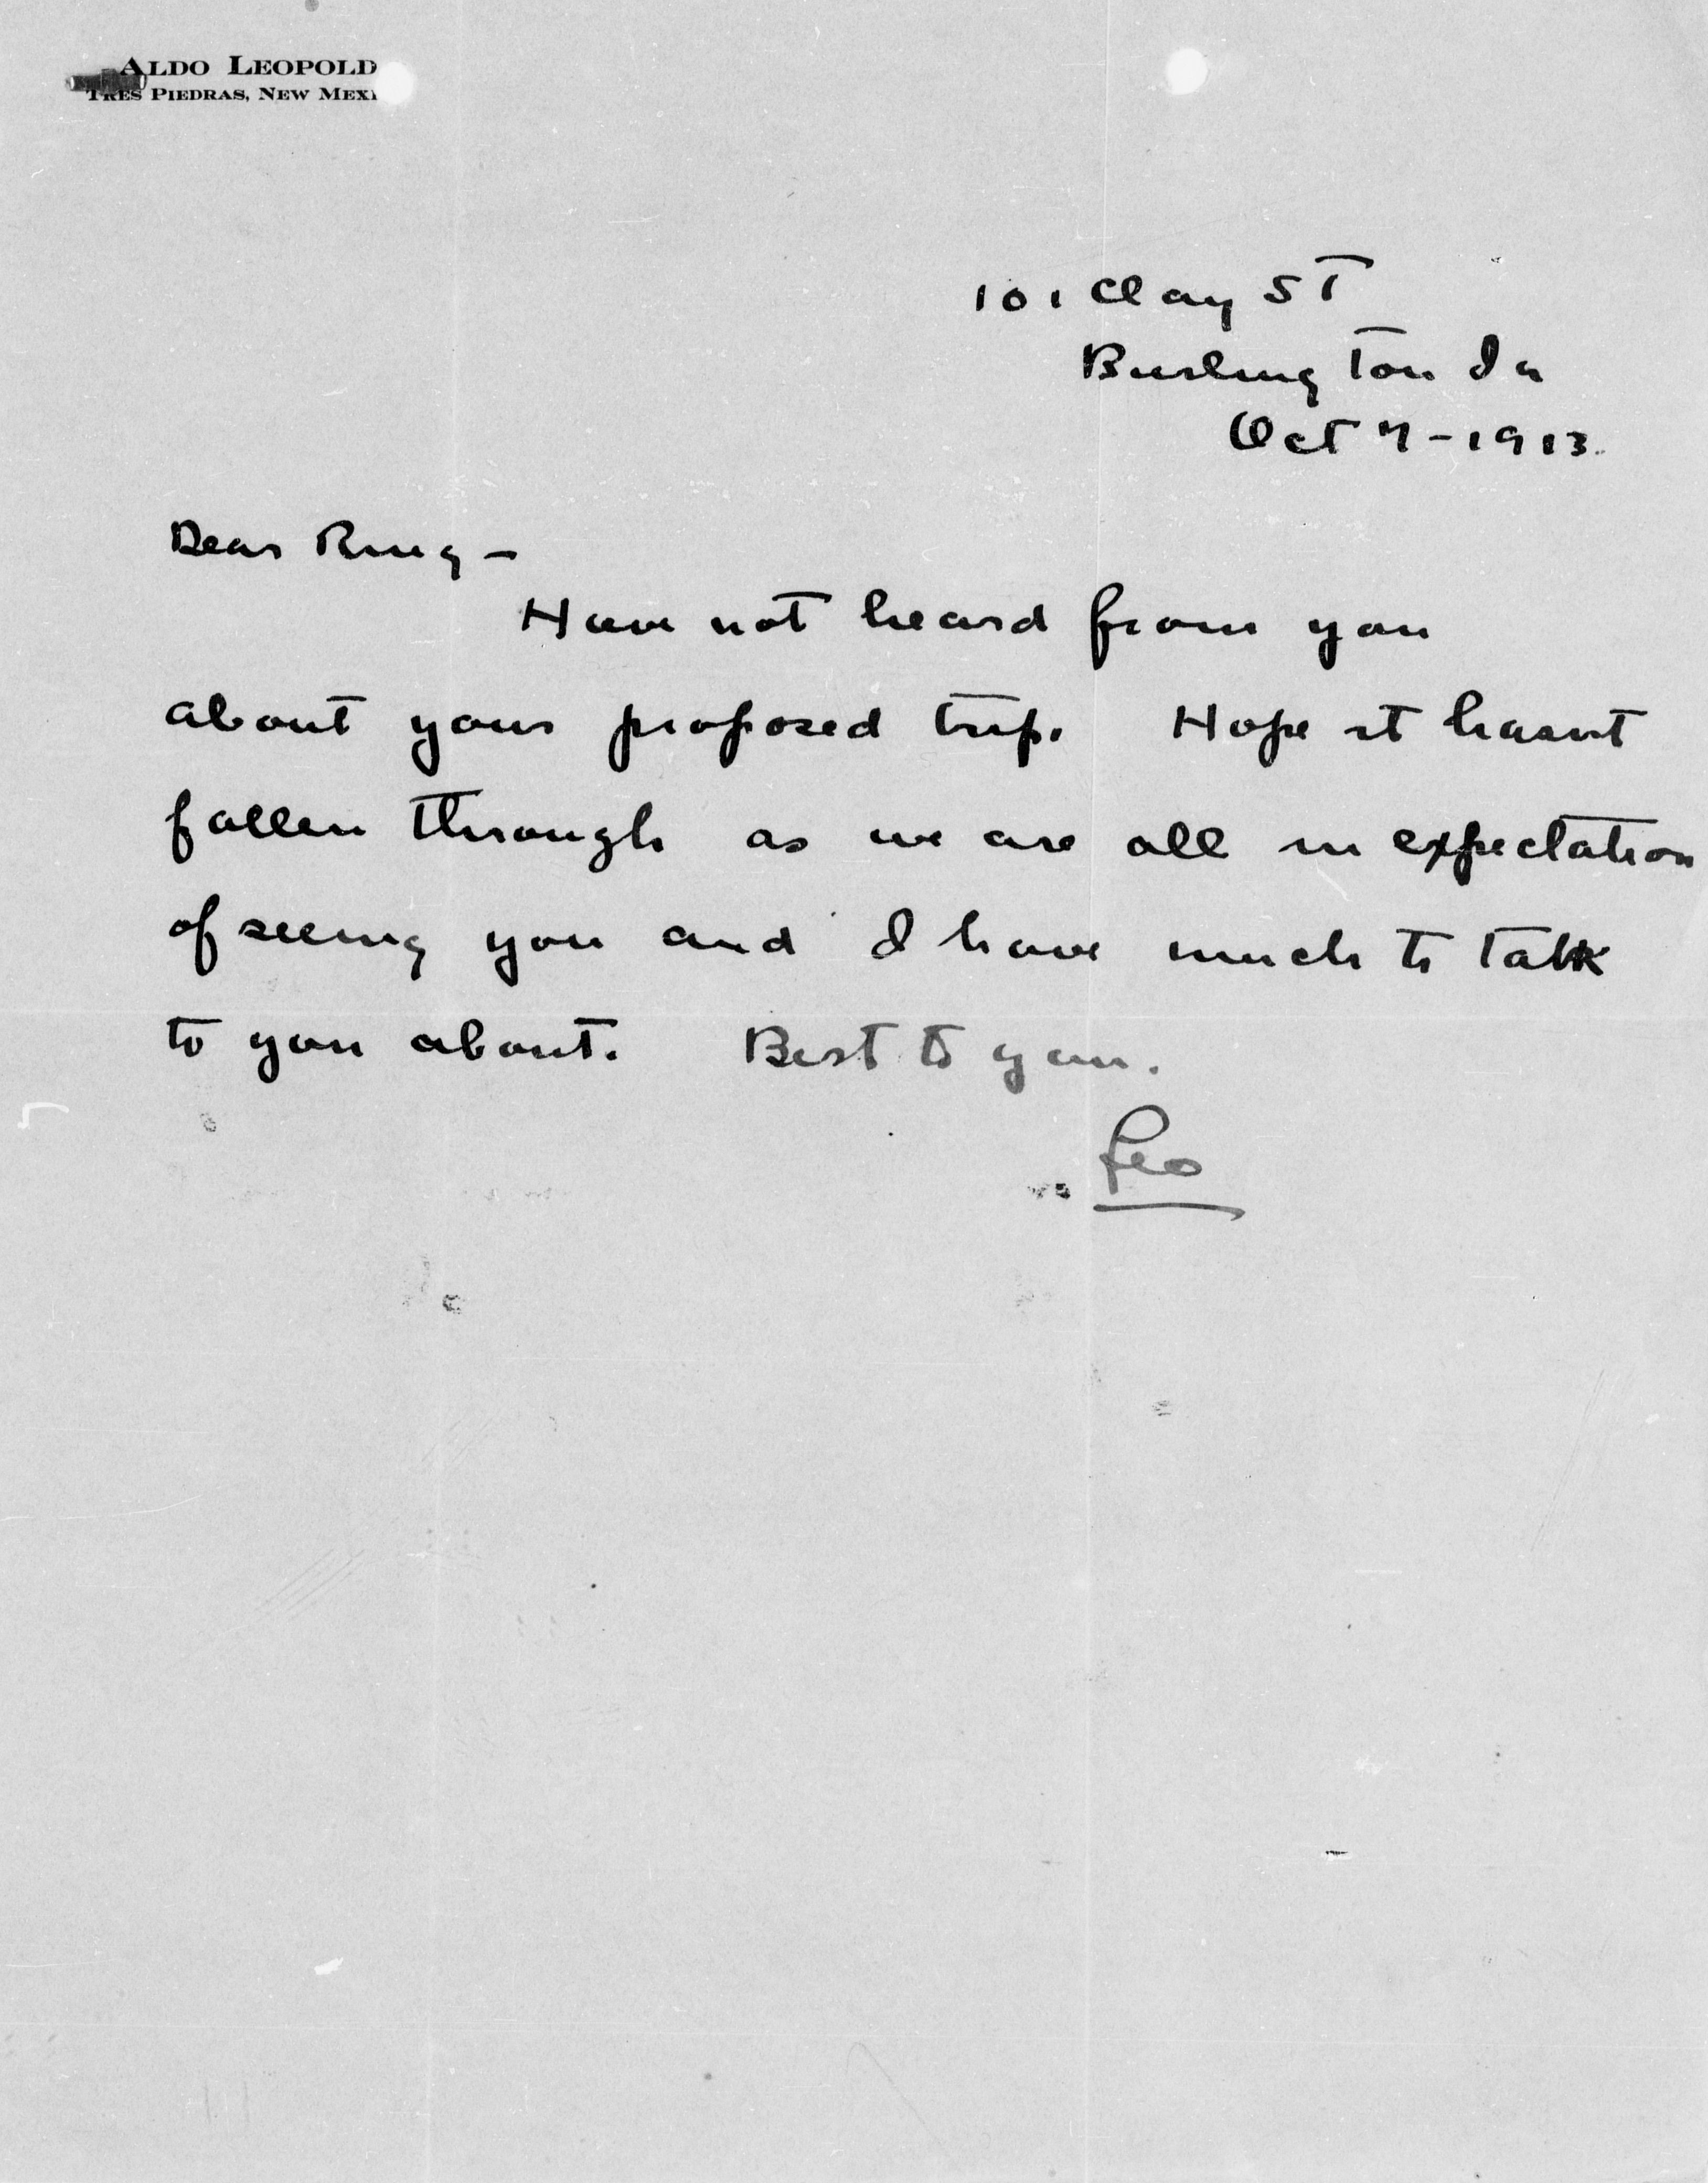 ALDO LEOPOLD
TRES PIEDRAS, NEW MEXI
101 Clay ST
Burlington Ia
Oct 7-1913.
Dear Ring -
Have not heard from you
about your proposed trip. Hope it hasnt
fallen through as we are all in expectation
of seeing you and I have much to talk
to you about. Best to you.
Leo